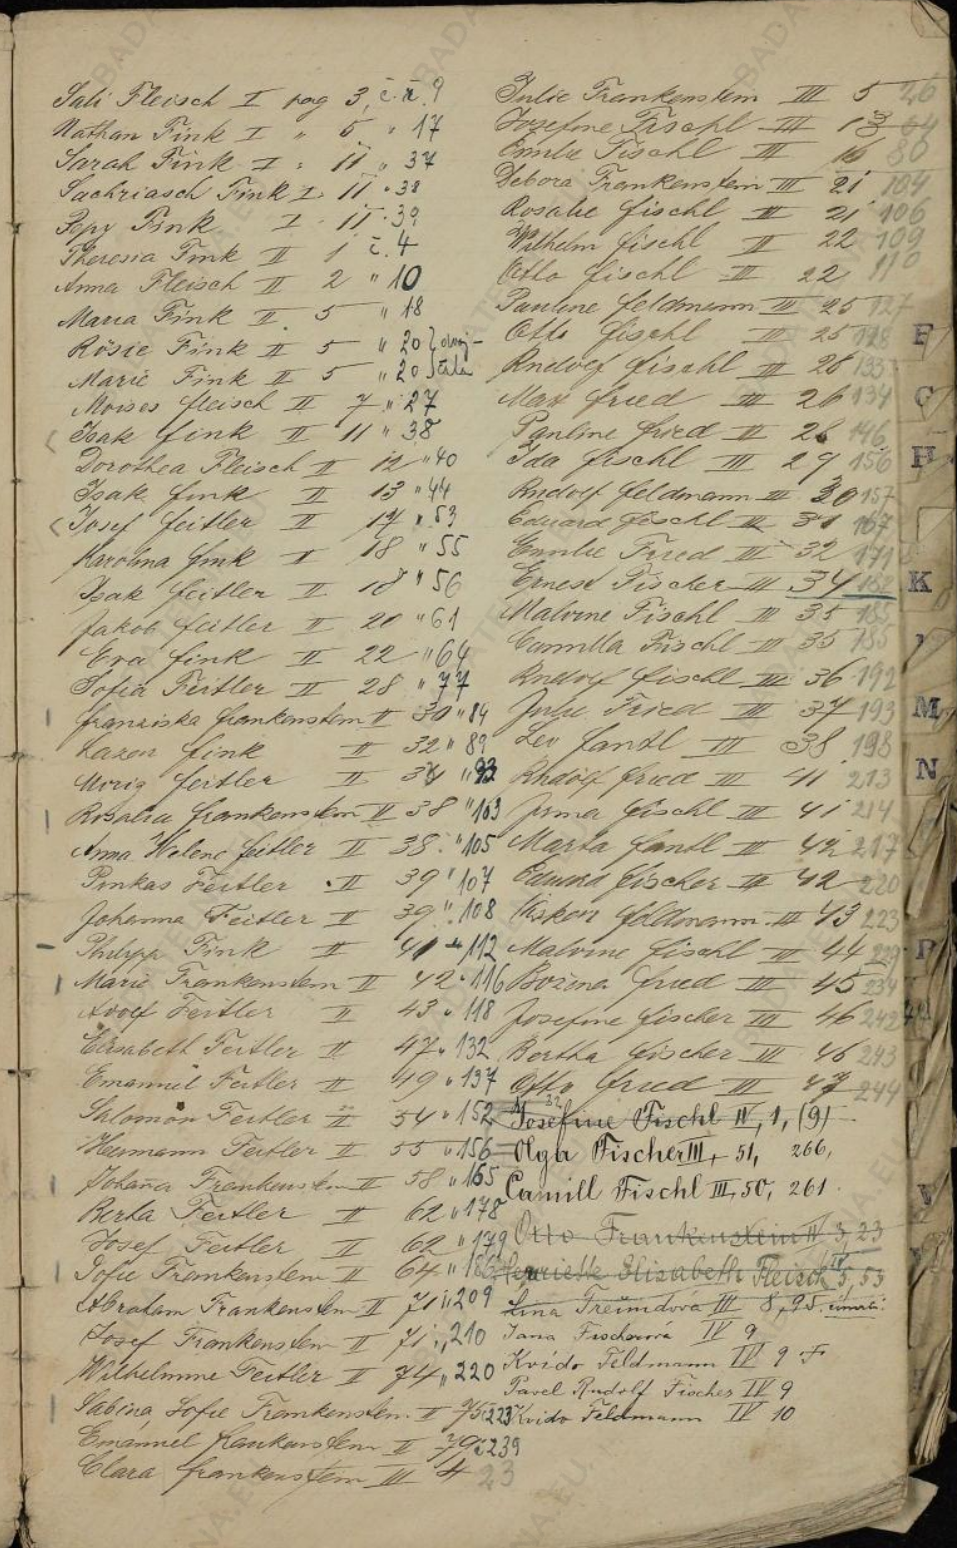 Sali Fleisch I pag 3, č.ř. 9
Nathan Fink I " 5 " 17
Sarah Fink I " 11 " 37
Sachriasch Fink I 11 " 38
Pepy Fink I 11 " 39
Theresia Fink II 1 č. 4
Anna Fleisch II 2 " 10
Maria Fink II 5 " 18
Rösie Fink II 5 " 20 } dvoj-
Marie Fink II 5 " 20 } čata
Moises Fleisch II 7 " 27
Isak Fink II 11 " 38
Dorothea Fleisch II 12 " 40
Isak Fink II 13 " 44
Josef Feitler II 17 " 53
Karolina Fink II 18 " 55
Isak Feitler II 18 " 56
Jakob Feitler II 20 " 61
Eva Fink II 22 " 64
Sofia Feitler II 28 " 77
Franziska Frankenstein II 30 " 84
Lazar Fink II 32 " 89
Moriz Feitler II 34 " 93
Rosalia Frankenstein II 38 " 103
Anna Helene Feitler II 38 " 105
Pinkas Feitler II 39 " 107
Johanna Feitler II 39 " 108
Philipp Fink II 41 " 112
Marie Frankenstein II 42 " 116
Adolf Feitler II 43 " 118
Elisabeth Feitler II 47 " 132
Emanuel Feitler II 49 " 137
Salomon Feitler II 54 " 152
Hermann Feitler II 55 " 156
Johaña Frankenstein II 58 " 165
Berta Feitler II 62 " 178
Josef Feitler II 62 " 179
Sofie Frankenstein II 64 " 186
Abraham Frankenstein II 71 " 209
Josef Frankenstein II 71 " 210
Wilhelmine Feitler II 74 " 220
Sabina Sofie Frankenstein II 75 " 223
Emanuel Frankenstein II 79 " 239
Clara Frankenstein III 4 23
Julie Frankenstein III 5 26
Josefine Fischl III 13 64
Emilie Fischl III 16 80
Debora Frankenstein III 21 104
Rosalie Fischl III 21 106
Wilhelm Fischl III 22 109
Otto Fischl III 22 110
Pauline Feldmann III 25 127
Otto Fischl III 25 128
Rudolf Fischl III 26 133
Max Fried III 26 134
Pauline Fried III 28 146
Ida Fischl III 29 156
Rudolf Feldmann III 30 157
Eduard Fischl III 31 167
Emilie Fried III 32 171
Ernest Fischer III 34 182
Malvine Fischl III 35 185
Camilla Fischl III 35 185
Rudolf Fischl III 36 192
Julie Fried III 37 193
Leo Fantl III 38 198
Rudolf Fried III 41 213
Irma Fischl III 41 214
Marta Fantl III 42 217
Fischer III 42 220
Feldmann III 43 223
Malvine Fischl III 44 229
Božena Fried III 45 234
Josefine Fischer III 46 242
Bertha Fischer III 46 243
Otto Fried III 47 244
Josefine Fischl IV, 1, (9)
Olga Fischer III, 51, 266,
Camill Fischl III, 50, 261.
Otto Frankenstein II 3, 23
Henriette Elisabeth Fleisch IV 5, 53
Lina Freundová III 8, 95.
Jana Fischerová IV 9
Kvido Feldmann IV 9
Pavel Rudolf Fischer IV 9
Kvido Feldmann IV 10
F
G
H
K
M
N
P
V